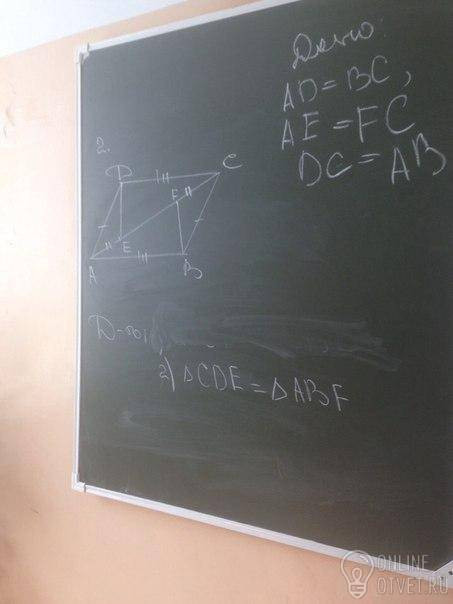 Дано:
AD = BC,
AE = FC
DC = AB
2.
D
C
F
E
A
B
Д-ть,
2) △CDE = △ABF
ONLINE
OTVET.RU